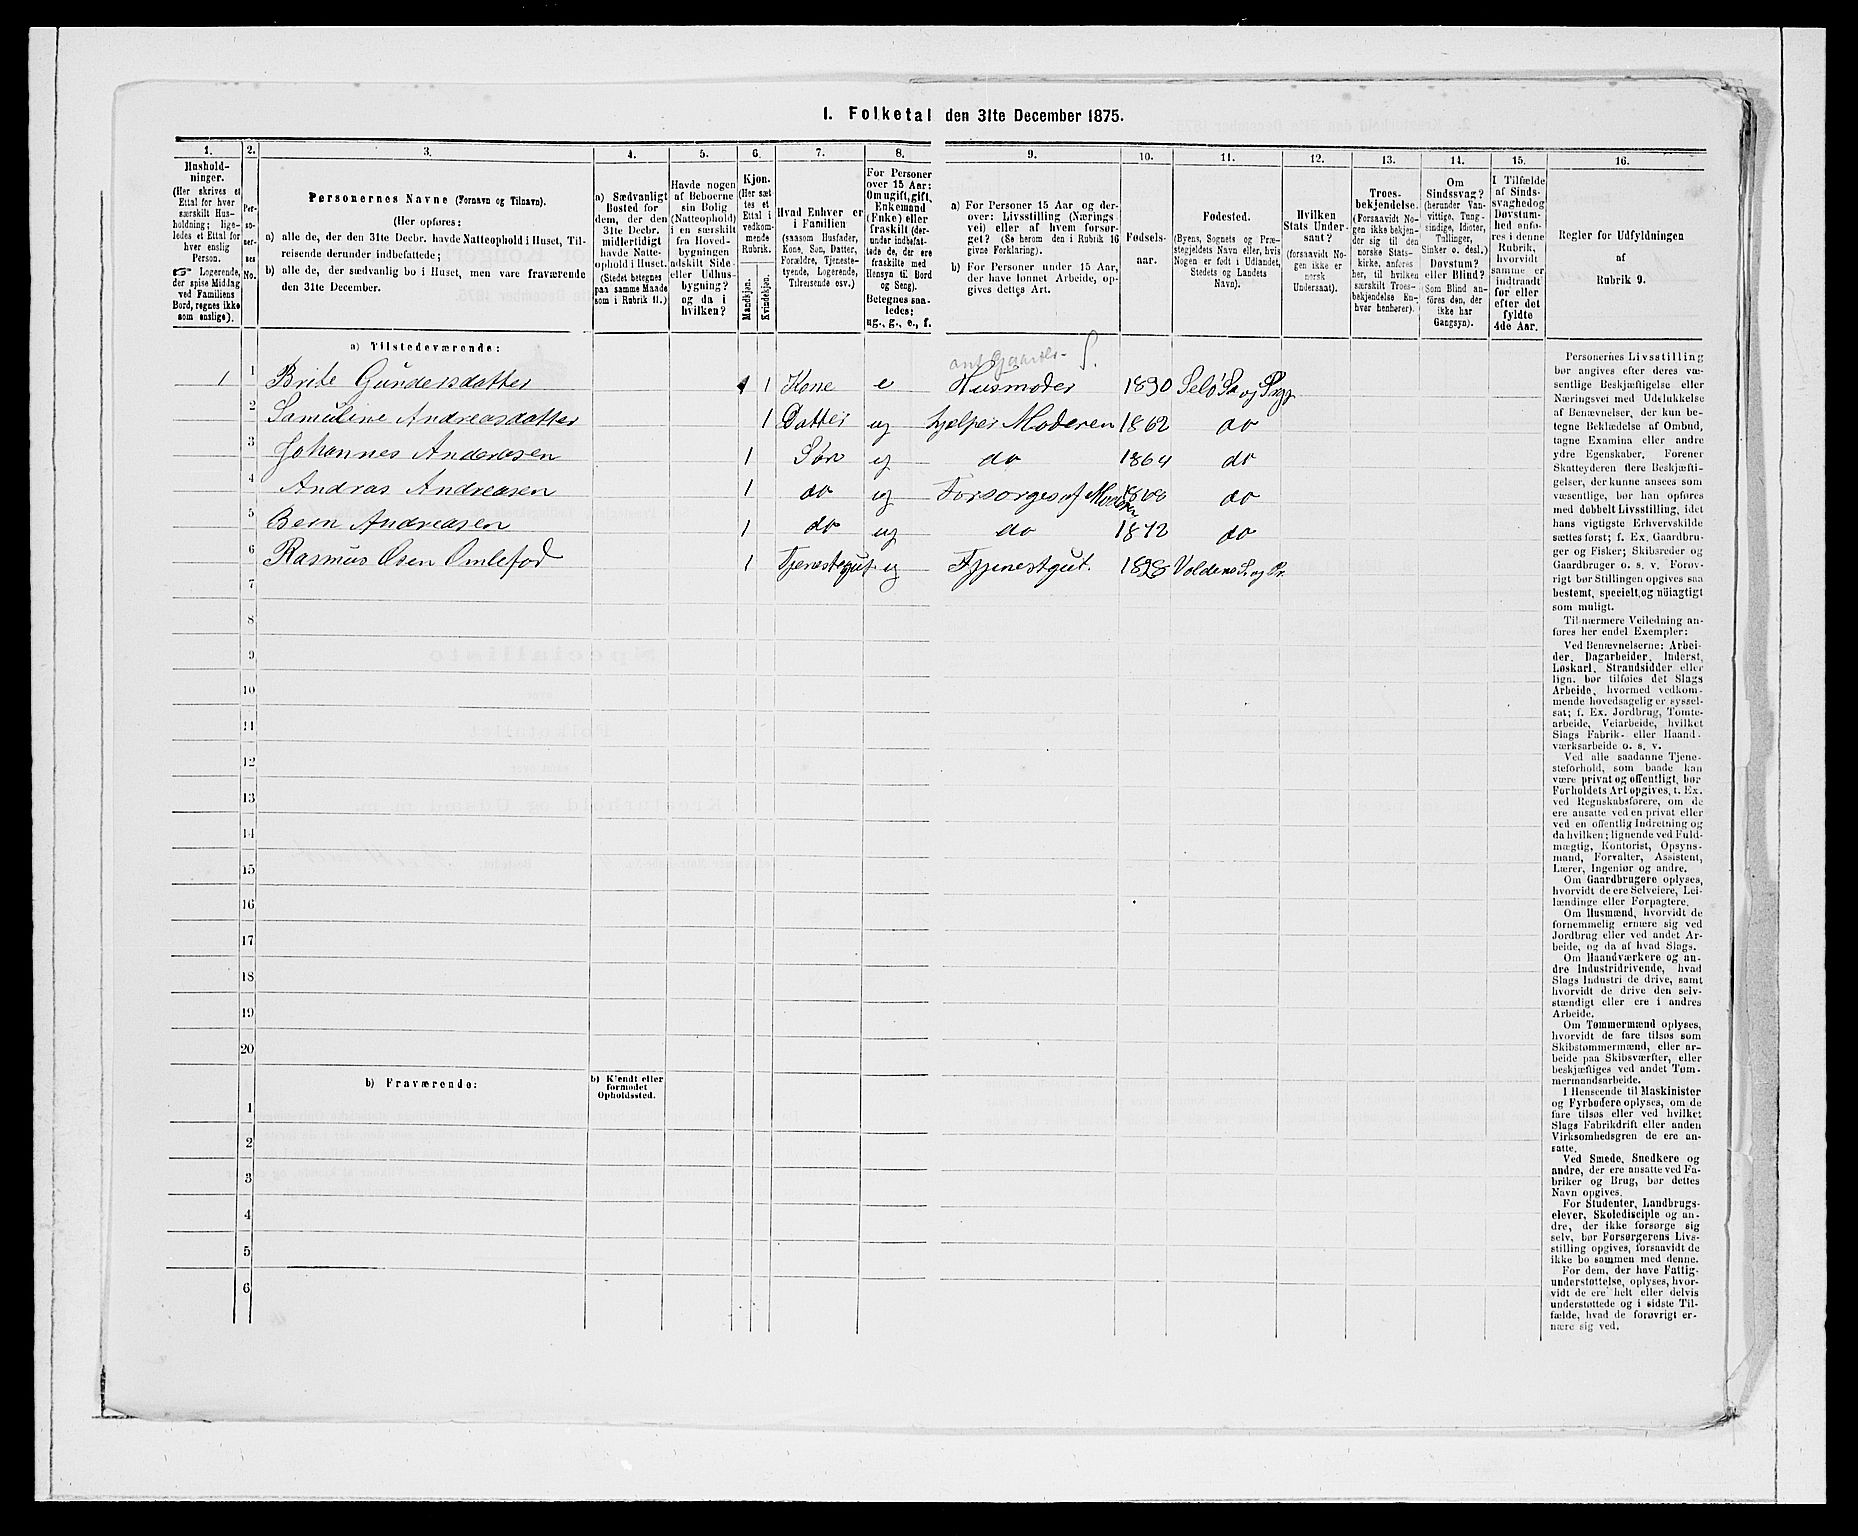 I. Folketal den 31te December 1875.
1. 2. 3. 4. 5. 6. 7. 8. 9. 10. 11. 12. 13. 14. 15. 16.
Hushold-
ninger.
(Her skrives et
Ettal for hver
særskilt Hus-
holdning; lige-
ledes et Ettal for
hver enslig
Person.
☞ Logerende,
der spise Middag
ved Familiens
Bord, regnes ikke
som enslige).
Per-
so-
ner-
nes
No.
Personernes Navne (Fornavn og Tilnavn).
(Her opføres:
a) alle de, der den 31te Decbr. havde Natteophold i Huset, Til-
reisende derunder indbefattede;
b) alle de, der sædvanlig bo i Huset, men vare fraværende
den 31te December.
a) Sædvanligt
Bosted for
dem, der den
31te Decbr.
midlertidigt
havde Natte-
ophold i Huset.
(Stedet betegnes
paa samme Maade
som i Rubrik 11.)
Havde nogen
af Beboerne
sin Bolig
(Natteophold)
i en særskilt
fra Hoved-
bygningen
adskilt Side-
eller Udhus-
bygning?
og da i
hvilken?
Kjøn.
(Her sæt-
tes et
Ettal i
vedkom-
mende
Rubrik.
Mandkjøn.
Kvindekjøn.
Hvad Enhver er
i Familien
(saasom Husfader,
Kone, Søn, Datter,
Forældre, Tjeneste-
tyende, Logerende,
Tilreisende osv.)
For Personer
over 15 Aar:
Om ugift, gift,
Enkemand
(Enke) eller
fraskilt (der-
under indbefat-
tede de, der ere
fraskilte med
Hensyn til Bord
og Seng).
Betegnes saa-
ledes:
ug., g., e., f.
a) For Personer 15 Aar og der-
over: Livsstilling (Nærings-
vei) eller af hvem forsør-
get? (Se herom den i Rubrik 16
givne Forklaring).
b) For Personer under 15 Aar,
der have lønnet Arbeide, op-
gives dettes Art.
Fødsels-
aar.
Fødested.
(Byens, Sognets og Præ-
stegjeldets Navn eller, hvis
Nogen er født i Udlandet,
Stedets og Landets
Navn).
Hvilken
Stats Under-
saat?
(forsaavidt No-
gen ikke er
norsk
Undersaat).
Troes-
bekjendelse.
(Forsaavidt No-
gen ikke bekjen-
der sig til den
norske Stats-
kirke, anføres
her, til hvilken
særskilt Troes-
bekjendelse En-
hver henhører).
Om
Sindssvag?
(herunder Van-
vittige, Tung-
sindige, Idioter,
Tullinger,
Sinker o. desl.)
Døvstum?
eller Blind?
(Som Blind an-
føres den, der
ikke har
Gangsyn).
I Tilfælde
af Sinds-
svaghed og
Døvstum-
hed anfø-
res i denne
Rubrik,
hvorvidt
samme er
indtraadt
før eller
efter det
fyldte
4de Aar.
Regler for Udfyldningen
af
Rubrik 9.
a) Tilstedeværende:
S.
1 1 Brite Gundersdatter 1 Kone e Husmoder 1830 Selø So og Prgj
2 Samuline Andreasdatter 1 Datter ug hjelper Moderen 1862 do
3 Johannes Anderasen 1 Søn ug do 1864 do
4 Andras Andreasen 1 do ug Forsørges af Moderen do
5 Bern Andreasen 1 do ug do 1872 do
6 Rasmus Osen Omlefod 1 Tjenestegut ug Tjjenestgut. 1828 Voldens S. og Pr.
7
8
9
10
11
12
13
14
15
16
17
18
19
20
b) Fraværende:
b) Kjendt eller
formodet
Opholdssted.
1
2
3
4
5
6
Personernes Livsstilling
bør angives efter deres væ-
sentlige Beskjæftigelse eller
Næringsvei med Udelukkelse
af Benævnelser, der kun be-
tegne Beklædelse af Ombud,
tagne Examina eller andre
ydre Egenskaber. Forener
Skatteyderen flere Beskjæfti-
gelser, der kunne ansees som
væsentlige, bør han opføres
med dobbelt Livsstilling, idet
hans vigtigste Erhvervskilde
sættes først; f. Ex. Gaardbru-
ger og Fisker; Skibsreder og
Gaardbruger o. s. v. Forøv-
rigt bør Stillingen opgives saa
bestemt, specielt og nöiagtigt
som muligt.
Til nærmere Veiledning an-
føres her endel Exempler:
Ved Benævnelserne: Arbei-
der, Dagarbeider, Inderst,
Løskarl, Strandsidder eller
lign. bør tilføies det Slags
Arbeide, hvormed vedkom-
mende hovedsagelig er syssel-
sat; f. Ex. Jordbrug, Tomte-
arbeide, Veiarbeide, hvilket
Slags Fabrik- eller Haand-
værksarbeide o. s. v.
Ved alle saadanne Tjene-
steforhold, som baade kan
være privat og offentligt, bør
Forholdets Art opgives, f. Ex.
ved Regnskabsførere, om de
ere ansatte ved en privat eller
ved en offentlig Indretning og
da hvilken; lignende ved Fuld-
mægtig, Kontorist, Opsyns-
mand, Forvalter, Assistent,
Lærer, Ingeniør og andre.
Om Gaardbrugere oplyses,
hvorvidt de ere Selveiere, Lei-
lændinge eller Forpagtere.
Om Husmænd, hvorvidt de
fornemmelig ernære sig ved
Jordbrug eller ved andet Ar-
beide, og da af hvad Slags.
Om Haandværkere og an-
dre Industridrivende, hvad
Slags Industri de drive, samt
hvorvidt de drive den selv-
stændigt eller ere i andres
Arbeide.
Om Tømmermænd oplyses,
hvorvidt de fare tilsøs som
Skibstømmermænd, eller ar-
beide paa Skibsværfter, eller
beskjæftiges ved andet Tøm-
mermandsarbeide.
I Henseende til Maskinister
og Fyrbødere oplyses, om de
fare tilsøs eller ved hvilket
Slags Fabrikdrift eller anden
Virksomhedsgren de ere an-
satte.
Ved Smede, Snedkere og
andre, der ere ansatte ved Fa-
briker og Brug, bør dettes
Navn opgives.
For Studenter, Landbrugs-
elever, Skoledisciple og an-
dre, der ikke forsørge sig
selv, bør Forsørgerens Livs-
stilling opgives, forsaavidt de
ikke bo sammen med denne.
For dem, der have Fattig-
understøttelse, oplyses, hvor-
vidt de ere helt eller delvis
understøttede og i sidste Til-
fælde, hvad de forøvrigt er-
nære sig ved.